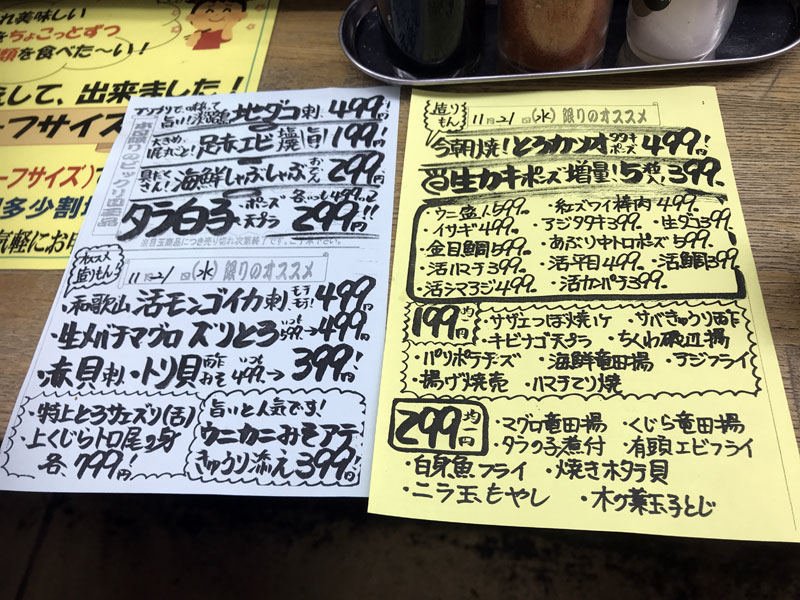 れ美味しい
をちょこっとずつ
類を食べた〜い!
して、出来ました!
ーフサイズ
ーフサイズ)で
多少割
気軽にお申
プリプリで、味、て
旨い!淡路産地ダコ刺.499円!
大きめ、
足赤エビ塩焼1尾199円!
具だくさん!海鮮しゃぶしゃぶおどん299円
タラ白子・ポン天ぷら各いつも499→299円!!
※目玉商品につき売り切れ次第終了です。ご了承下さい。
オススメ造りもん
11月21日(水)限りのオススメ
・和歌山活モンゴイカ刺.モチモチ!499円
・生メバチマグロズリとろいつも599→499円
・赤貝刺.・トリ貝酢みそいつも499→399円!
・特上とろサエズリ(舌)
・上くじらトロ尾の身
各、799円!
旨いと人気です!
ウニカニみそアテ
きゅうり添え399円!
造りもん
11月21日(水)限りのオススメ
今朝焼!とろカツオタタキポン499円!
生カキポンズ増量!5粒入!399円
・ウニ盛1.599円
・紅ズワイ棒肉499円
・イサギ499円
・アジタタキ399円
・生ダコ399円
・金目鯛599円
・あぶり中トロポン599円
・活ハマチ399円
・活平目499円
・活鯛399円
・活シマアジ499円
・活カンパチ399円
199円均一
・サザエつぼ焼1ヶ
・サバきゅうり酢
・キビナゴ天ぷら
・ちくわ磯辺揚
・パリポテチーズ
・海鮮竜田揚
・アジフライ
・揚げ焼売
・ハマチテリ焼
299均一円
・マグロ竜田揚
・くじら竜田揚
・タラの子煮付
・有頭エビフライ
・白身魚フライ
・焼きホタテ貝
・ニラ玉もやし
・木の葉玉子とじ